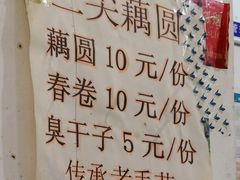 尖藕圆
藕圆 10 元/份
春卷 10 元/份
臭干子 5 元/份
传承老手艺